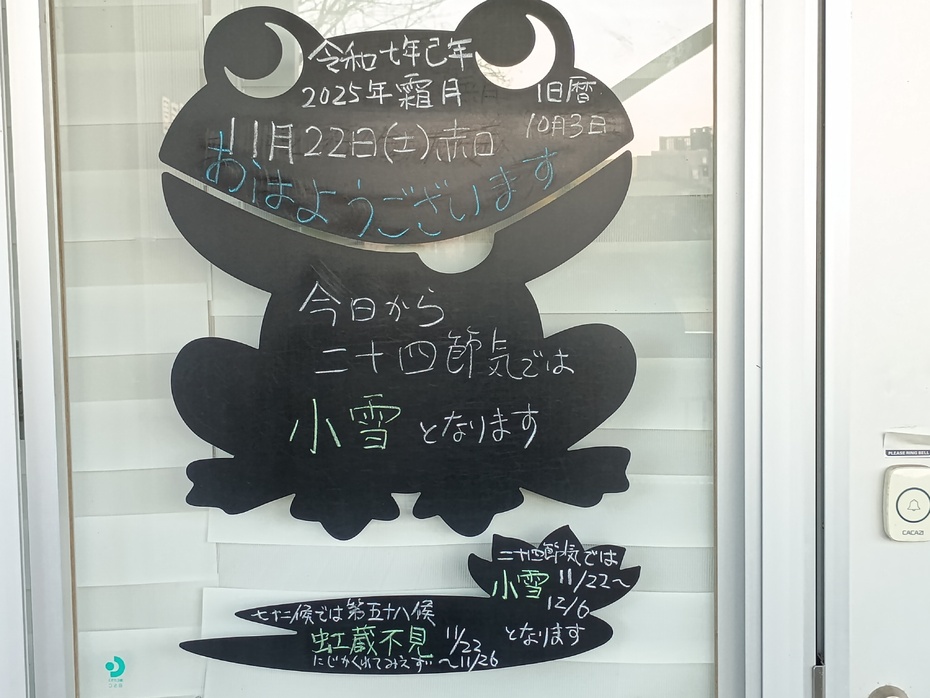 令和七年己年
2025年 霜月
旧暦
10月3日
11月22日(土)赤口
おはようございます
今日から
二十四節気では
小雪 となります
二十四節気では
小雪 11/22〜
12/6
となります
七十二候では 第五十八候
虹蔵不見 11/22
にじかくれてみえず 〜11/26
PLEASE RING BELL
CACAZI